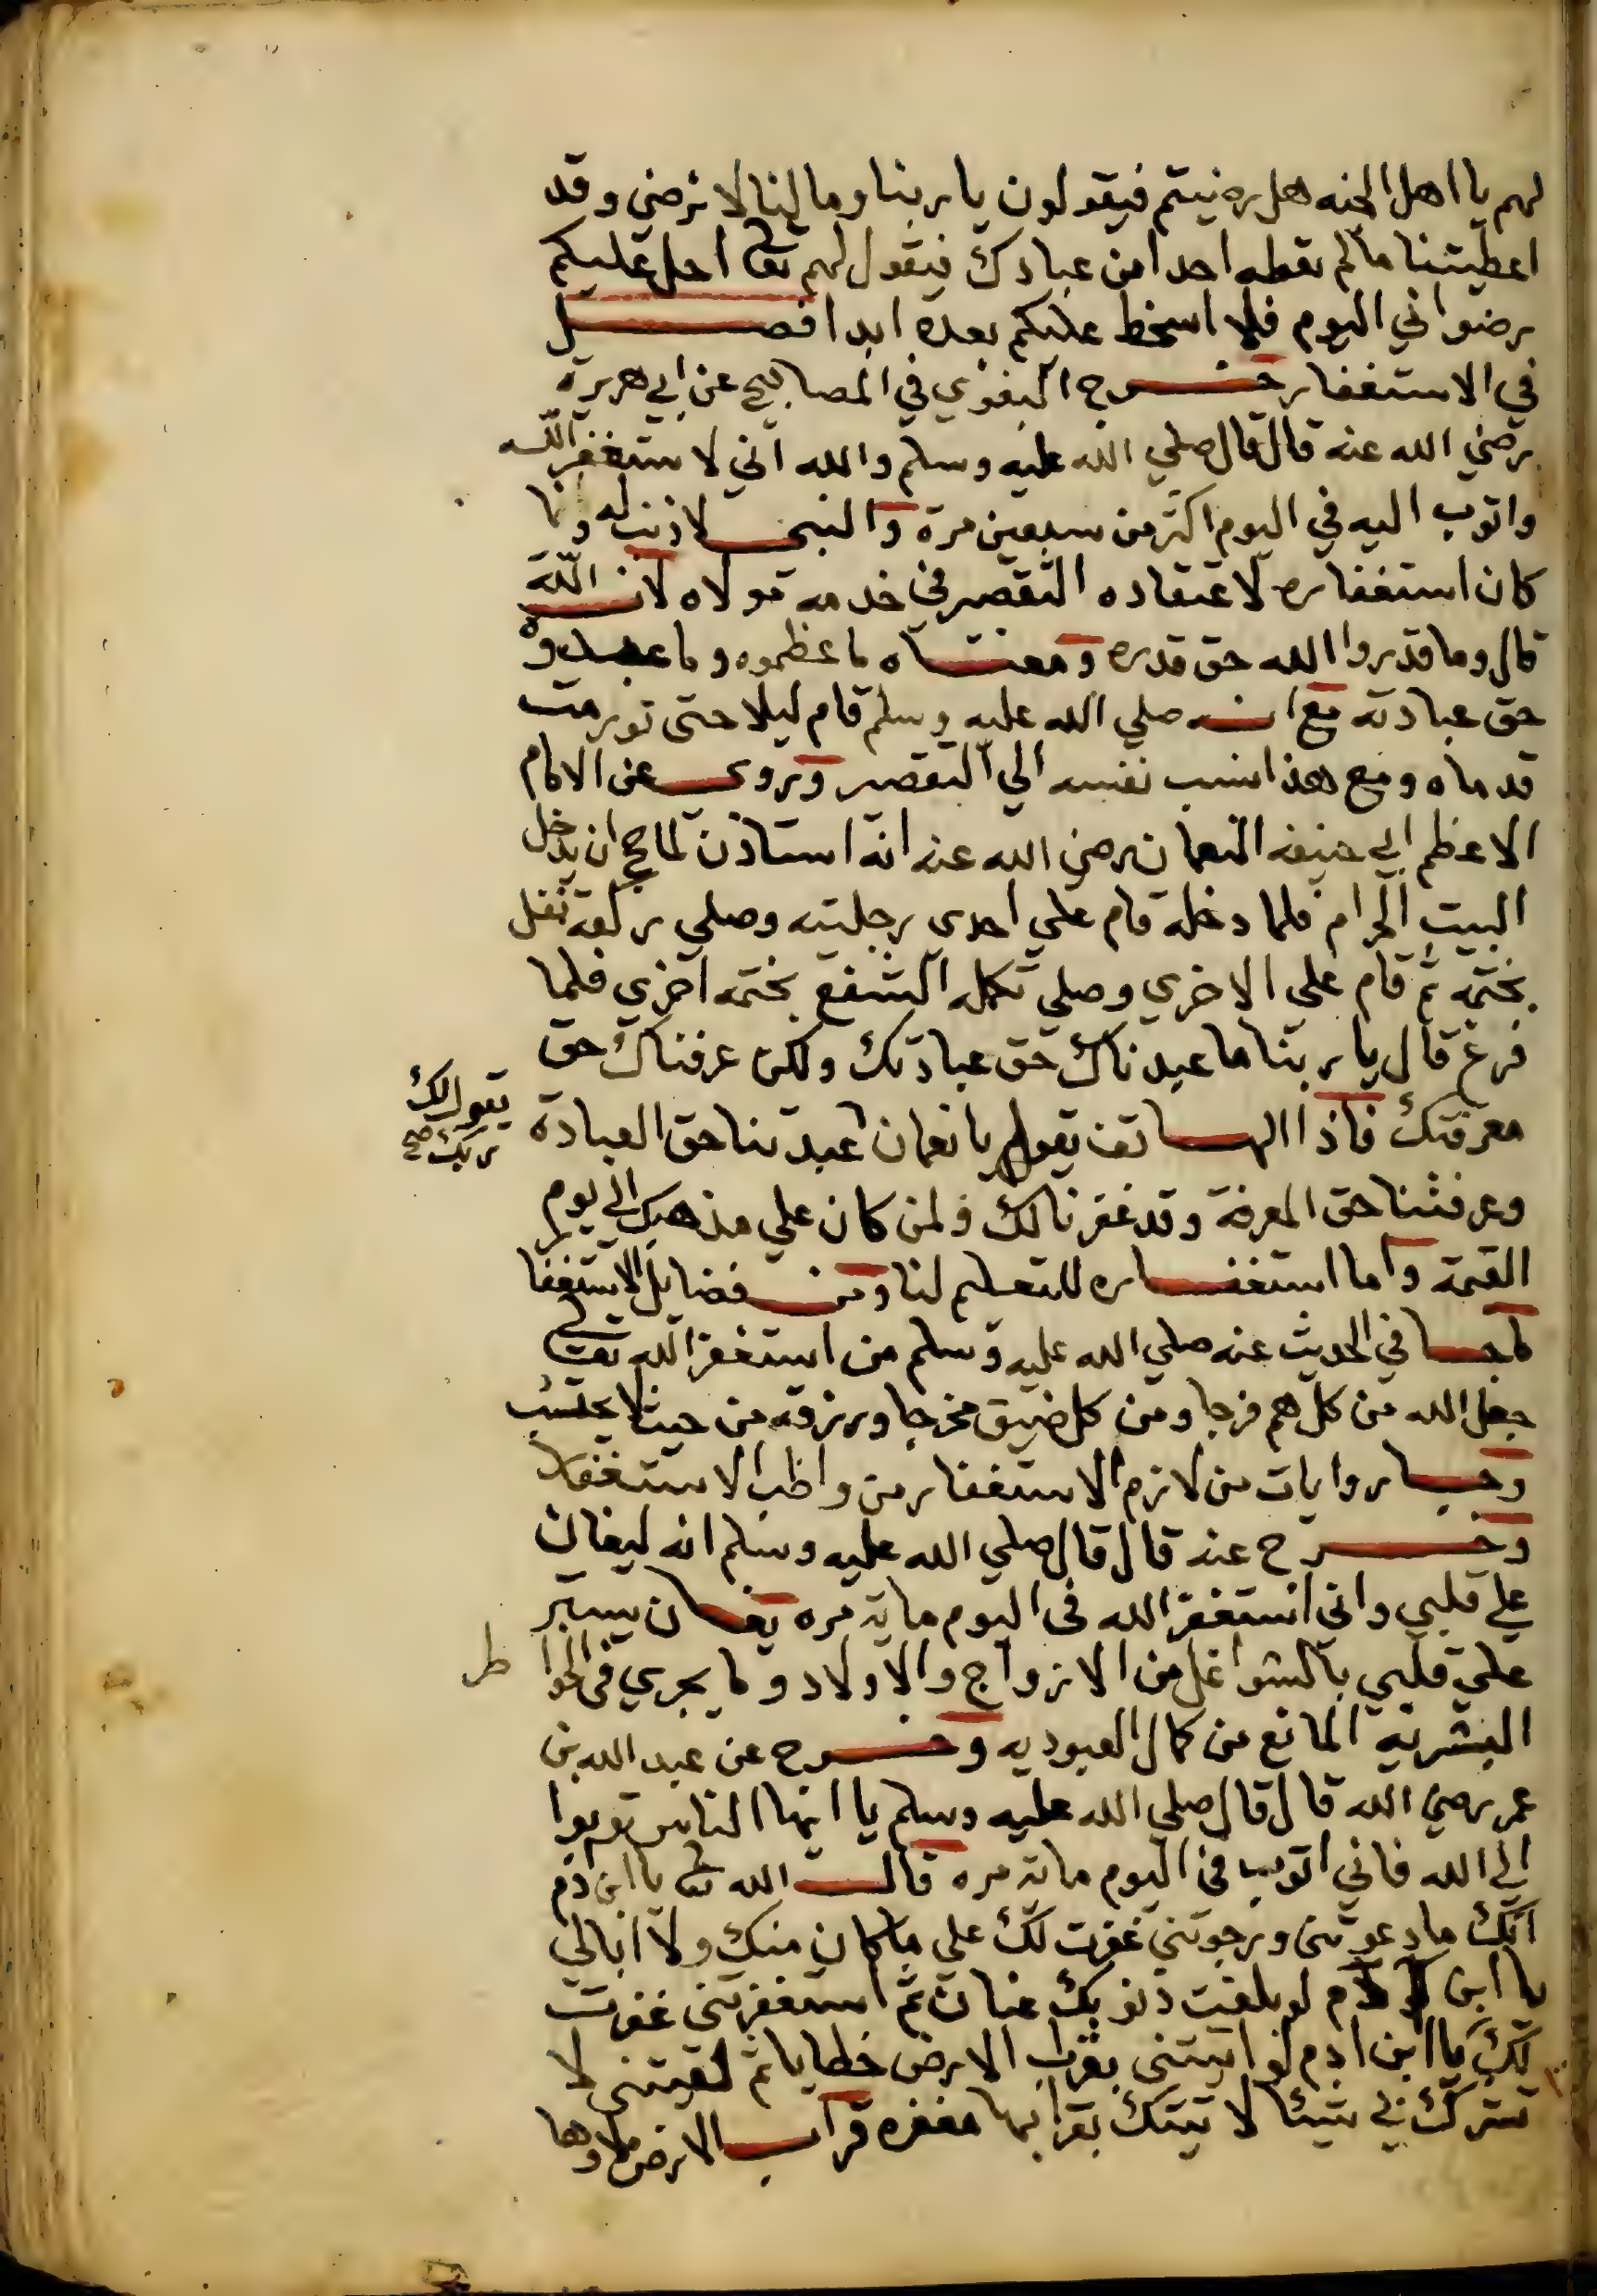 لهم يا اهل الجنه هل رضيتم فيقولون يا ربنا وما لنا لا نرضي وقد
اعطيتنا ما لم تعطه احدا من عبادك فيقول لهم تعا احل عليكم
رضواني اليوم فلا اسخط عليكم بعده ابدا فصل
في الاستغفار خرج البغوي في المصابيح عن ابي هريرة
رضي الله عنه قال قال صلي الله عليه وسلم والله اني لاستغفر الله
واتوب اليه في اليوم اكثر من سبعين مرة والنبي لا ذنب له وانما
كان استغفاره لاعتقاده التقصير في خدمه مولاه لان الله
قال وما قدروا الله حق قدره ومعناه ما عظموه وما عبدوه
حق عبادته مع انه صلي الله عليه وسلم قام ليلا حتى تورمت
قدماه ومع هذا نسب نفسه الي التقصير وروي عن الامام
الاعظم ابي حنيفه النعمان رضي الله عنه انه استاذن لما حج ان يدخل
البيت الحرام فلما دخله قام علي احدى رجليه وصلي ركعة نفل
بختمه ثم قام علي الاخري وصلي تكمله الشفع بختمه اخري فلما
فرغ قال يا ربنا ما عبدناك حق عبادتك ولكن عرفناك حق
معرفتك فاذا الهاتف يقول يا نعمان عبدتنا حق العبادة
يقول لك
ربك صح
وعرفتنا حق المعرفة وقد غفرنا لك ولمن كان علي مذهبك الي يوم
القيمة واما استغفاره للتعليم لنا ومن فضايل الاستغفا
ما جا في الحديث عنه صلي الله عليه وسلم من استغفر الله تعالي
جعل الله من كل هم فرجا ومن كل ضيق مخرجا ورزقه من حيث لا يحتسب
وجا روايات من لازم الاستغفار من واظب الاستغفار
وخرج عنه قال قال صلي الله عليه وسلم انه ليغان
علي قلبي واني استغفر الله في اليوم ماية مره يغان يستر
علي قلبي بالشواغل من الازواج والاولاد وما يجري في الخوا
طر
البشريه المانع من كمال العبوديه وخرج عن عبد الله بن
عمر رضي الله قال قال صلي الله عليه وسلم يا ايها الناس توبوا
الي الله فاني اتوب في اليوم ماية مره قال الله تعا يا ابن ادم
انك ما دعوتني ورجوتني غفرت لك علي ما كان منك ولا ابالي
يا ابن ادم لو بلغت ذنوبك عنان ثم استغفرتني غفرت
لك يا ابن ادم لو اتيتني بقراب الارض خطايا ثم لقيتني لا
تشرك بي شيئا لاتيتك بقرابها مغفره قراب الارض ملاوها